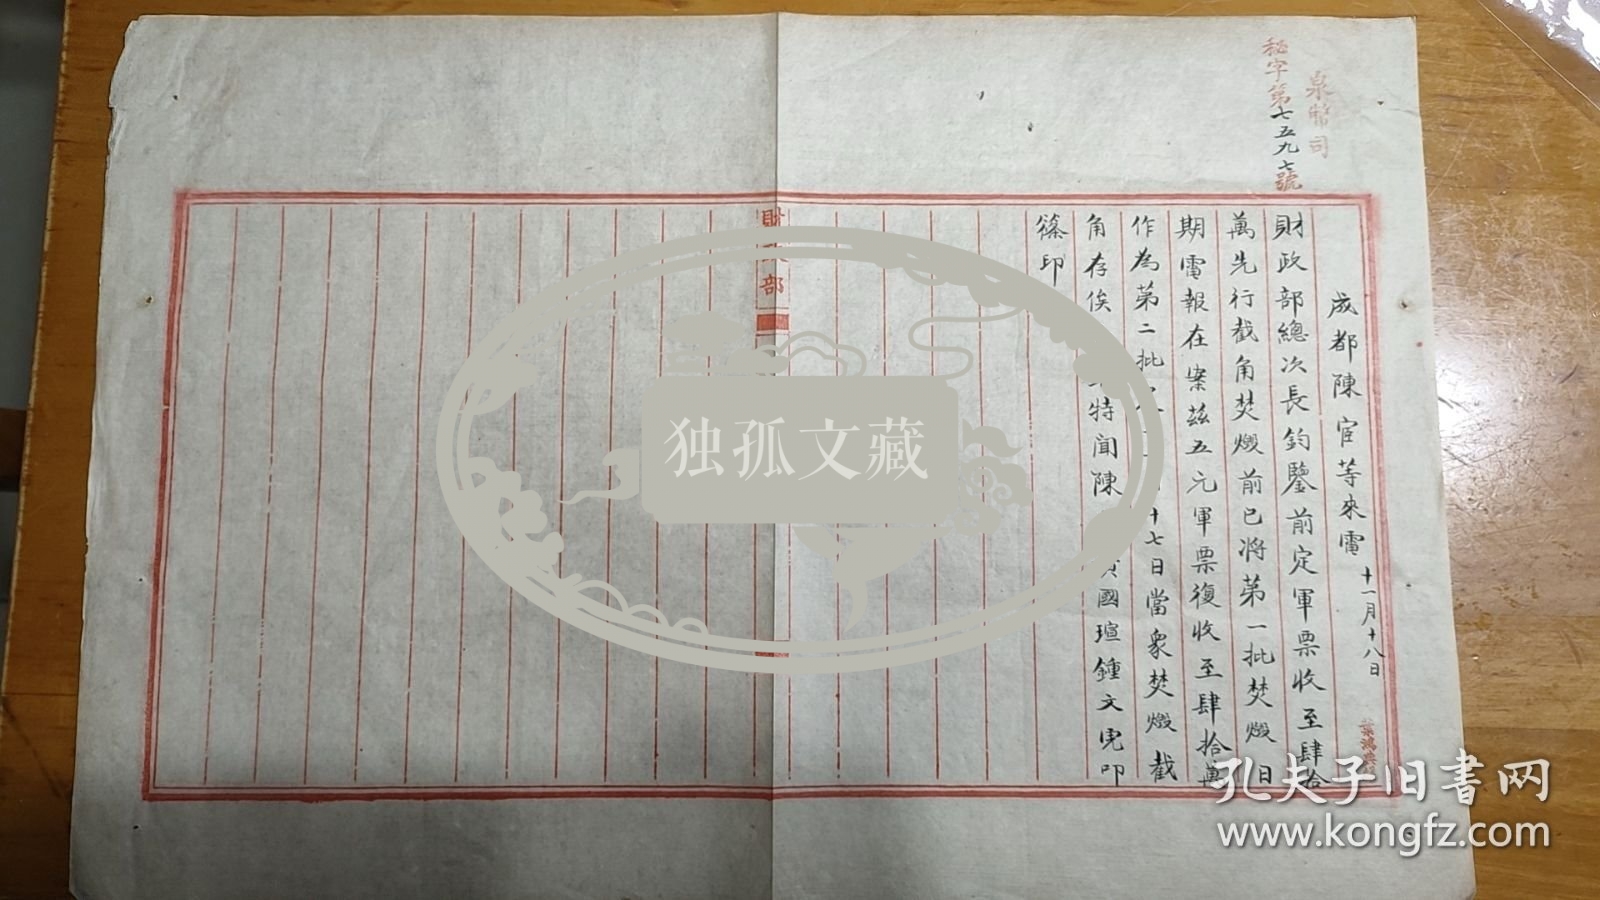 泉幣司
秘字第七五九七號
成都陳宧等來電 十一月十八日
財政部總次長鈞鑒前定軍票收至肆拾
萬先行截角焚燬前已將第一批焚燬日
期電報在案茲五元軍票復收至肆拾萬
作為第二批十七日當眾焚燬截
角存俟特聞陳國瑄鍾文虎叩
篠印
財部
独孤文藏
孔夫子旧书网
www.kongfz.com